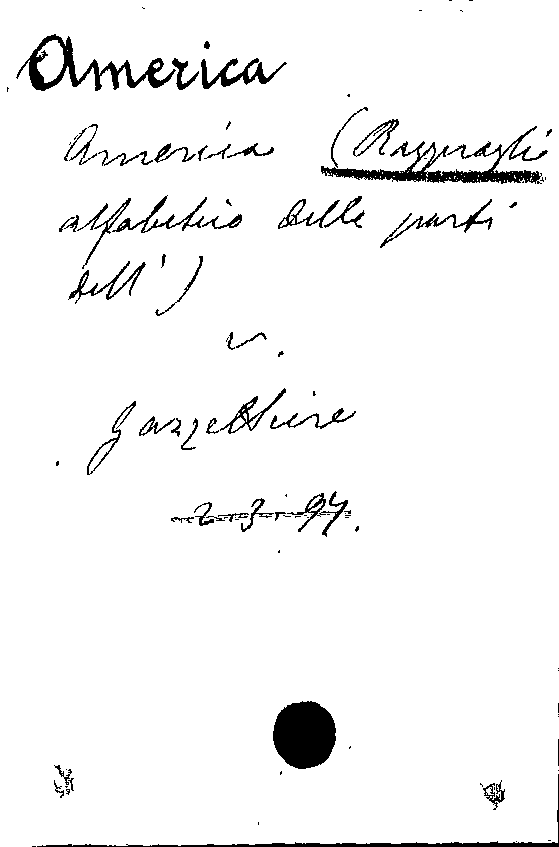 America
America (Ragguagli
alfabetico delle parti
dell')
v.
Gazzettiere
2.3.94.